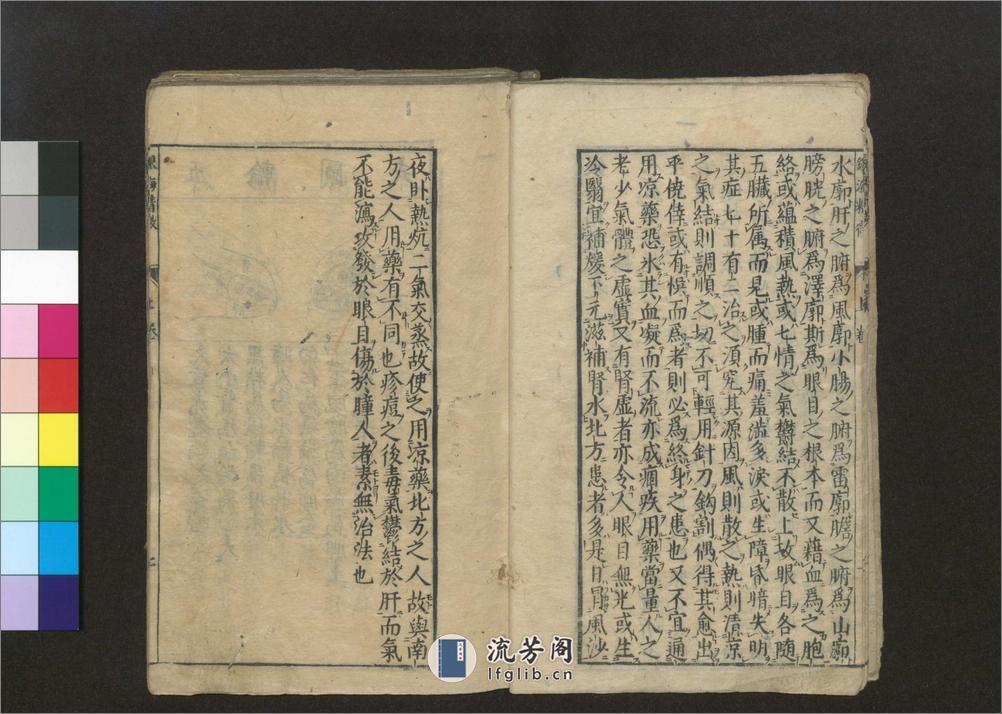 水廓肝之腑爲風廓小腸之腑爲雷廓膽之腑爲山廓
膀胱之腑爲澤廓斯爲眼目之根本而又藉血爲之胞
絡或蘊積風熱或七情之氣鬱結不散上攻眼目各隨
五臟所属而見或腫而痛羞澁多淚或生障昏暗失明
其症七十有二治之須究其源因風則散之熱則清凉
之氣結則調順之切不可輕用針刀鈎割偶得其愈出
平僥倖或有悞而爲者則必爲終身之患也又不宜過
用凉藥恐氷其血凝而不流亦成痼疾用藥當量人之
老少氣體之虚實又有腎虚者亦令人眼目無光或生
冷翳宜補煖下元滋補腎水北方患者多是日冐風沙
夜卧熱炕二氣交蒸故使之用凉藥北方之人故與南
方之人用藥有不同也疹痘之後毒氣鬱結於肝而氣
不能瀉攻發於眼目傷於瞳人者素無治法也
流芳阁
lfglib.cn